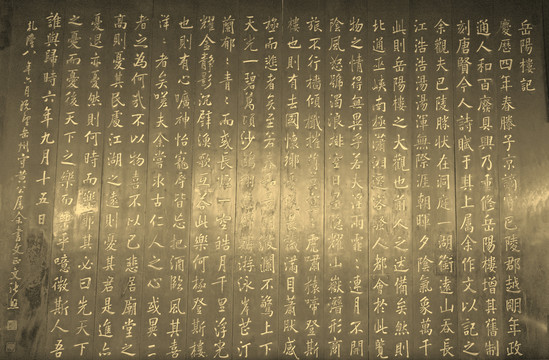 岳陽樓記
慶曆四年春滕子京謫守巴陵郡越明年政
通人和百廢具興乃重修岳陽樓增其舊制
刻唐賢今人詩賦于其上屬余作文以記之
余觀夫巴陵勝狀在洞庭一湖銜遠山吞長
江浩浩湯湯渾無際涯朝暉夕陰氣象萬千
此則岳陽樓之大觀也前人之述備矣然則
北通巫峽南極瀟湘遷客騷人多會于此覽
物之情得無異乎若夫霪雨霏:連月不開
陰風怒號濁浪排空日星隱耀山嶽潛形商
旅不行檣傾楫摧薄暮冥:虎嘯猿啼登斯
樓也則有去國懷鄉憂讒畏譏滿目蕭然感
極而悲者矣至若春和景明波瀾不驚上下
天光一碧萬頃沙鷗翔集錦鱗游泳岸芷汀
蘭郁:青:而或長煙一空皓月千里浮光
耀金靜影沉璧漁歌互答此樂何極登斯樓
也則有心曠神怡寵辱皆忘把酒臨風其喜
洋:者矣嗟夫余嘗求古仁人之心或異二
者之為何哉不以物喜不以己悲居廟堂之
高則憂其民處江湖之遠則憂其君是進亦
憂退亦憂然則何時而樂耶其必曰先天下
之憂而憂後天下之樂而樂歟噫微斯人吾
誰與歸時六年九月十五日